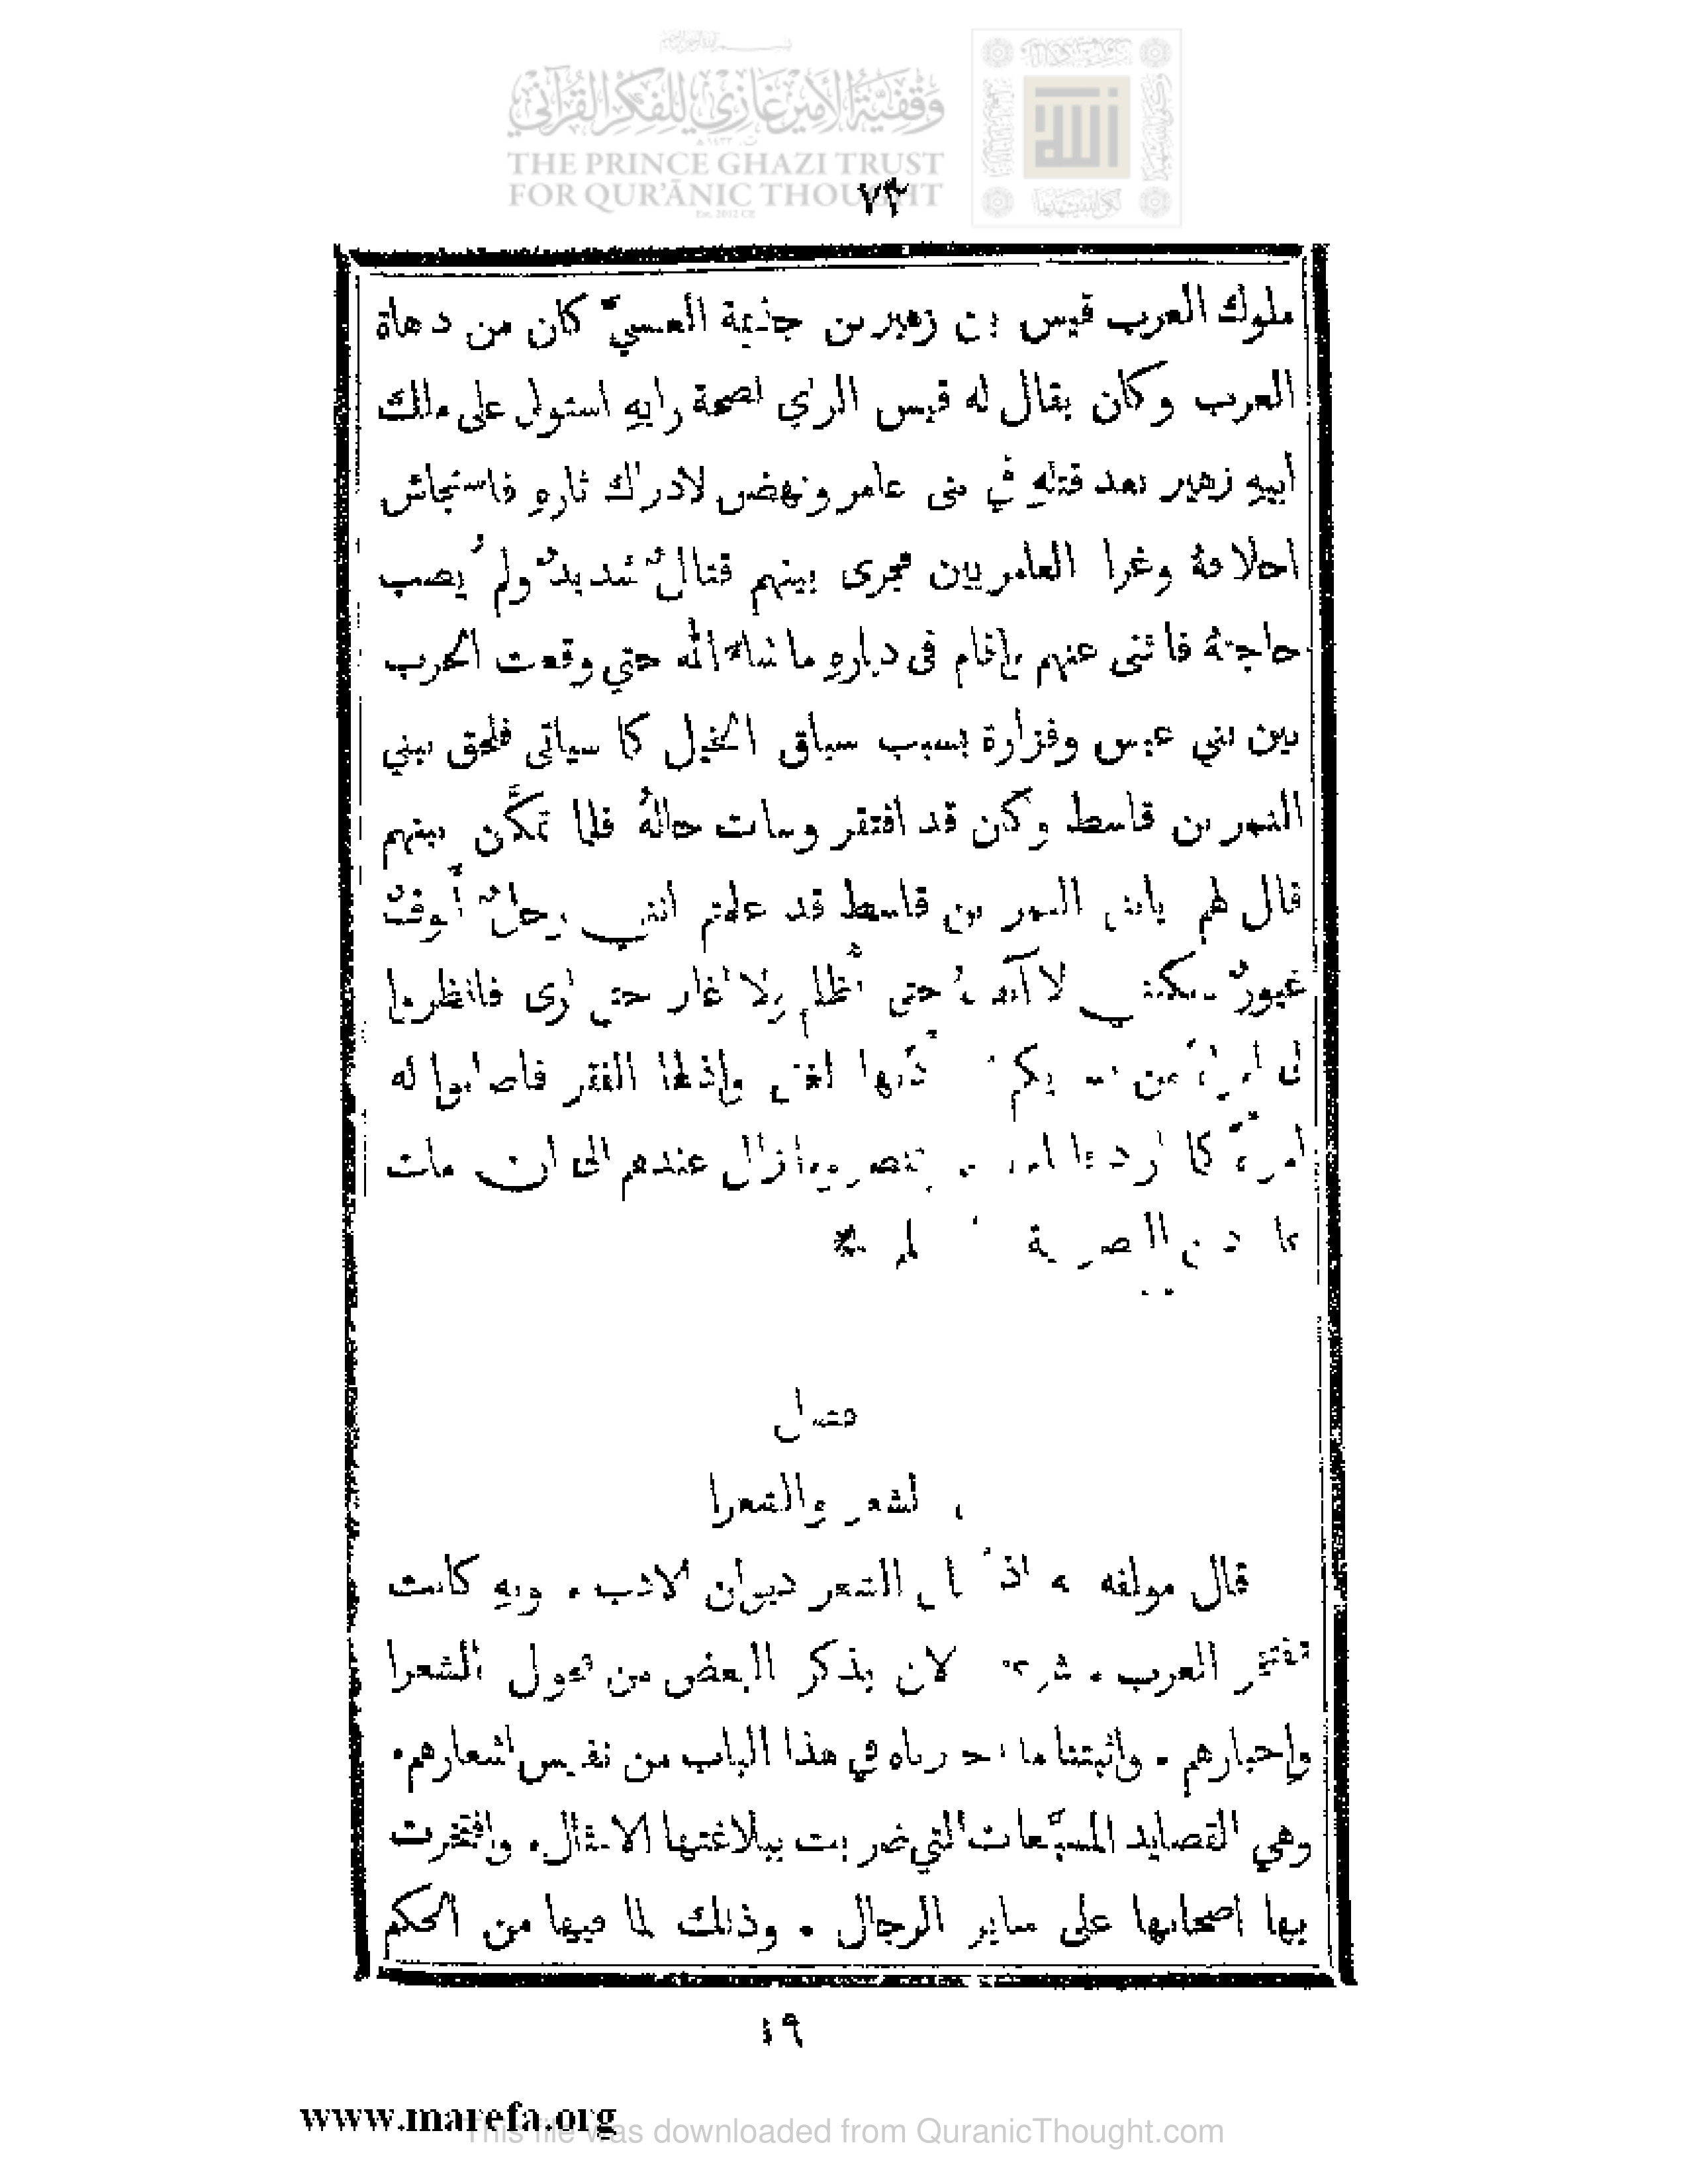 وقفية الأمير غازي للفكر القرآني
THE PRINCE GHAZI TRUST
FOR QUR'ĀNIC THOUGHT
Est. 2012 CE
٧٣
ملوك العرب قيس بن زهير بن جذيمة العبسيّ كان من دهاة
العرب وكان يقال له قيس الراي لصحة رايهِ استولى على ملك
ابيهِ زهير بعد قتلهِ في بنى عامر ونهض لادراك ثارهِ فاستجاش
احلافهُ وغزا العامريين فجرى بينهم قتالٌ شديدٌ ولم يُصب
حاجتهُ فانثنى عنهم واقام فى ديارهِ ما شاء الله حتي وقعت الحرب
بين بني عبس وفزارة بسبب سباق الخيل كما سياتى فلحق ببني
النمر بن قاسط وكان قد افتقر وسات حالهُ فلما تمكَّن بينهم
قال لهم يابنى النمر بن قاسط قد علمتم اننى رجلٌ أنوفٌ
غيورٌ ولكننى لا آنف حتى أظلم ولا اغار حتى ارى فانظروا
لى امراةً من اذلها الفقر فاصابوا له
امراةً كما اراد وما زال عندهم الى ان مات
فصل
الشعر والشعرا
قال مولفه الشعر ديوان الادب ۰ وبهِ كانت
تفتخر العرب ۰ لان يذكر البعض من فحول الشعرا
واخبارهم ۰ واثبتنا ما في هذا الباب من نفيس اشعارهم۰
وهي القصايد المسبَّعات التي ضربت ببلاغتها الامثال۰ وافتخرت
بها اصحابها على ساير الرجال ۰ وذلك لما فيها من الحكم
١٩
www.marefa.org
This file was downloaded from QuranicThought.com